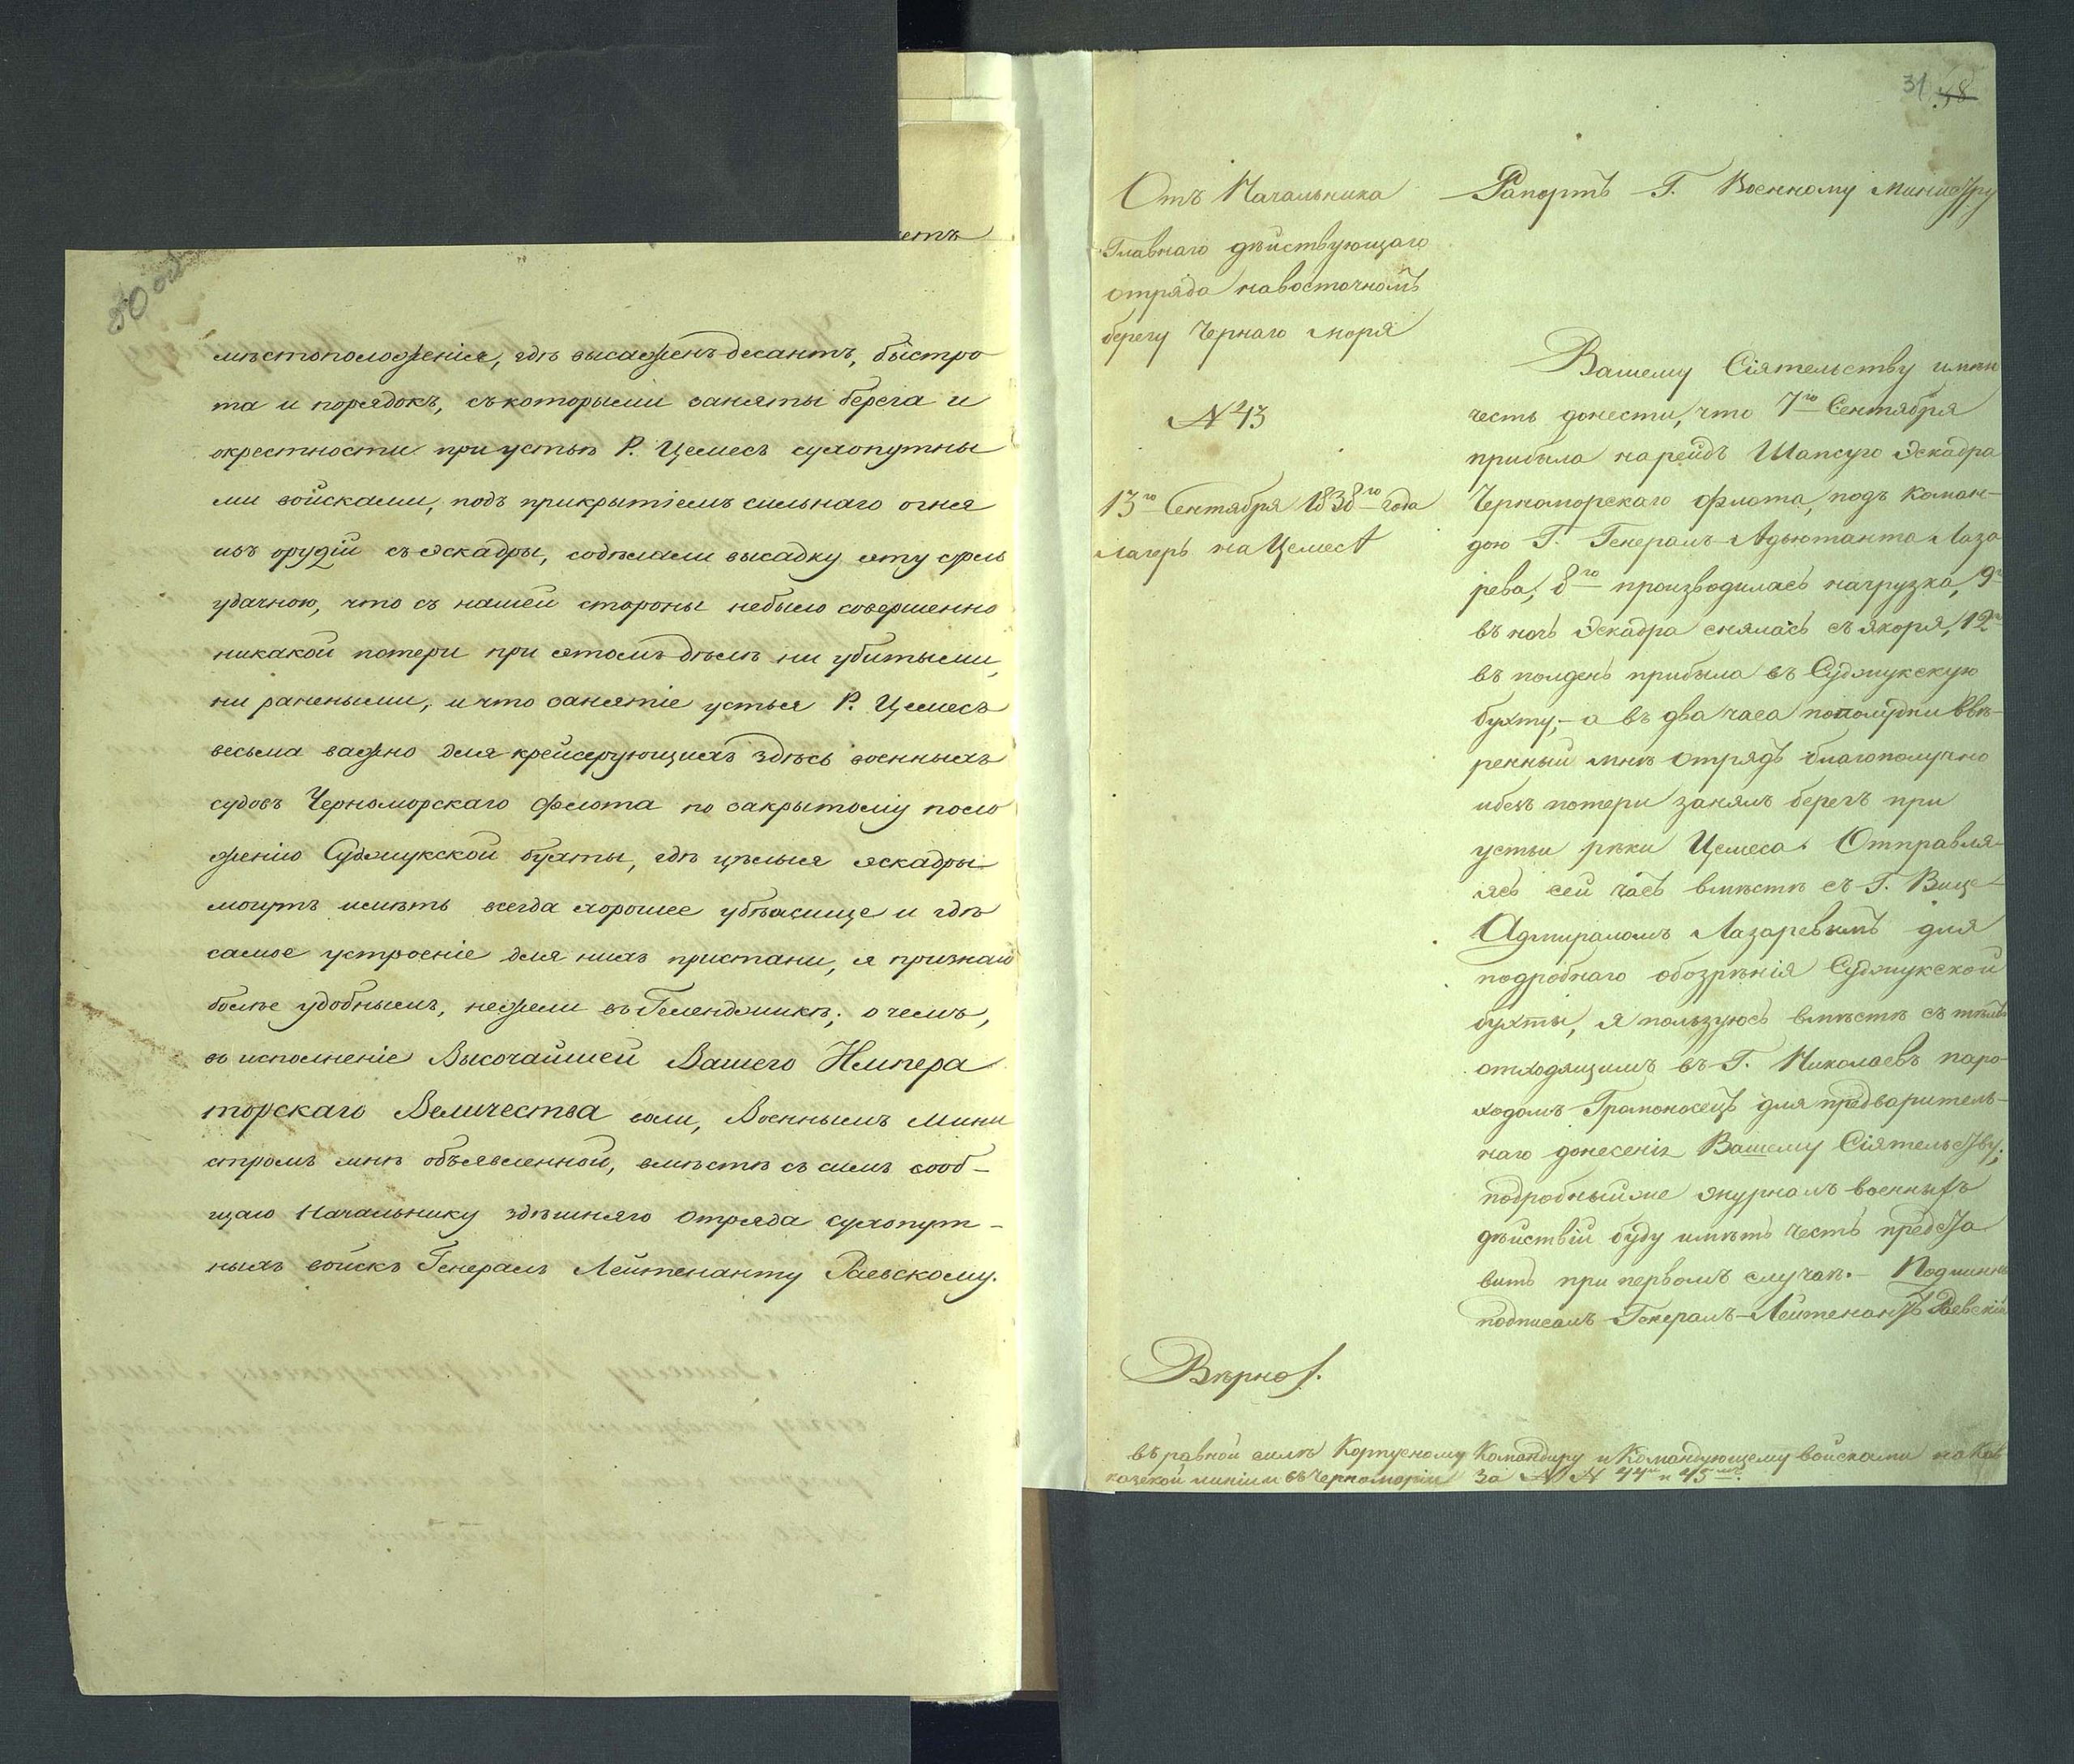 30 об
мѣстоположенія, гдѣ высаженъ десантъ, быстро
та и порядокъ, съ которыми заняты берега и
окрестности при устьѣ Р. Цемесъ сухопутны
ми войсками, подъ прикрытіемъ сильнаго огня
изъ орудій съ эскадры, содѣлали высадку эту столь
удачною, что съ нашей стороны небыло совершенно
никакой потери при этомъ дѣлѣ ни убитыми,
ни ранеными, и что занятіе устья Р. Цемесъ
весьма важно для крейсерующихъ здѣсь военныхъ
судовъ Черноморскаго флота по закрытому поло
женію Суджукской бухты, гдѣ цѣлыя эскадры
могутъ имѣть всегда хорошее убѣжище и гдѣ
самое устроеніе для нихъ пристани, я признаю
болѣе удобнымъ, нежели въ Геленджикѣ; о чемъ,
во исполненіе Высочайшей Вашего Импера
торскаго Величества воли, Военнымъ Мини
стромъ мнѣ объявленной, вмѣстѣ съ симъ сооб-
щаю Начальнику здѣшняго отряда сухопут-
ныхъ войскъ Генералъ Лейтенанту Раевскому.
етъ
31 58
Отъ Начальника
Главнаго дѣйствующаго
отряда на восточномъ
берегу Чернаго моря
№ 43
13го Сентября 1838го года
Лагерь на Цемесѣ
Рапортъ Г. Военному Министру
Вашему Сіятельству имѣю
честь донести, что 7го Сентября
прибыла на рейдъ Шапсуго Эскадра
Черноморскаго флота, подъ коман-
дою Г. Генералъ-Адъютанта Лаза
рева, 8го производилась нагрузка, 9го
въ ночь Эскадра снялась съ якоря, 12го
въ полдень прибыла въ Суджукскую
бухту,- а въ два часа пополудни ввѣ-
ренный мнѣ отрядъ благополучно
и безъ потери занялъ берегъ при
устьи рѣки Цемеса. Отправля-
ясь сей часъ вмѣстѣ съ Г. Вице-
Адмираломъ Лазаревымъ для
подробнаго обозрѣнія Суджукской
бухты, я пользуюсь вмѣстѣ съ тѣмъ
отходящимъ въ Г. Николаевъ паро-
ходомъ Громоносецъ для предваритель-
наго донесенія Вашему Сіятельству;
подробный же журналъ военныхъ
дѣйствій буду имѣть честь предста
вить при первомъ случаѣ.- Подлинный
подписалъ Генералъ-Лейтенантъ Раевскій
Вѣрно.
въ равной силѣ Корпусному Командиру и Командующему войсками на Кав
казской линіи и въ Черноморіи за №№ 44м и 45мъ.